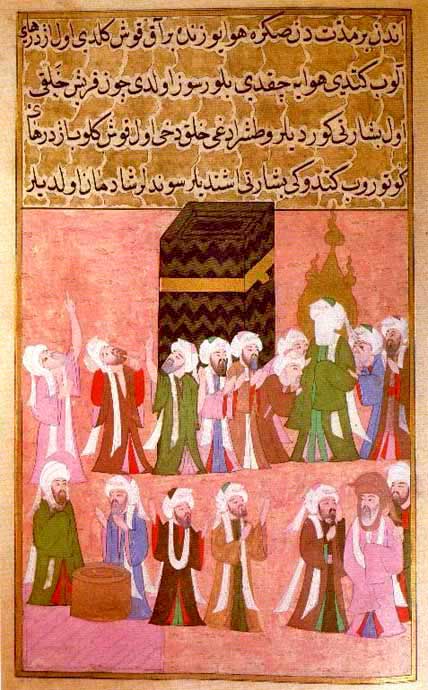 اندن بر مدت دن صکره هوا یوزندن بر آق قوش کلدی اول اژدرهای
آلوب کتدی هوایه چقدی بلورسوز اولدی چون قریش خلقی
اول بشارتی کوردیلر و طنلر ادغی خلق دخی اول قوش کلوب اژدرهای
کوتوروب کندوکی بشارتی اشتدیلر سوندلر شادمان اولدیلر